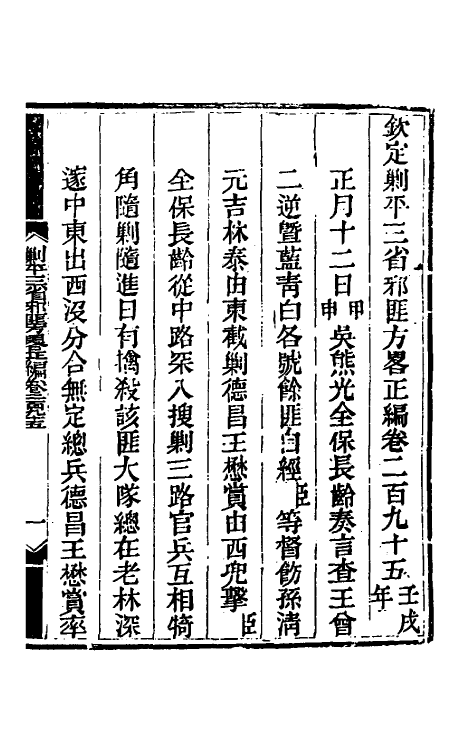 欽定剿平三省邪匪方畧正編卷二百九十五壬戌年
正月十二日甲申吳熊光全保長齡奏言查王曾
二逆暨藍靑白各號餘匪自經臣等督飭孫淸
元吉林泰由東截剿德昌王懋賞由西兜擊臣
全保長齡從中路深入搜剿三路官兵互相犄
角隨剿隨進日有擒殺該匪大隊總在老林深
邃中東出西沒分合無定總兵德昌王懋賞率
剿平三省邪匪方畧正編卷二百九十五
一